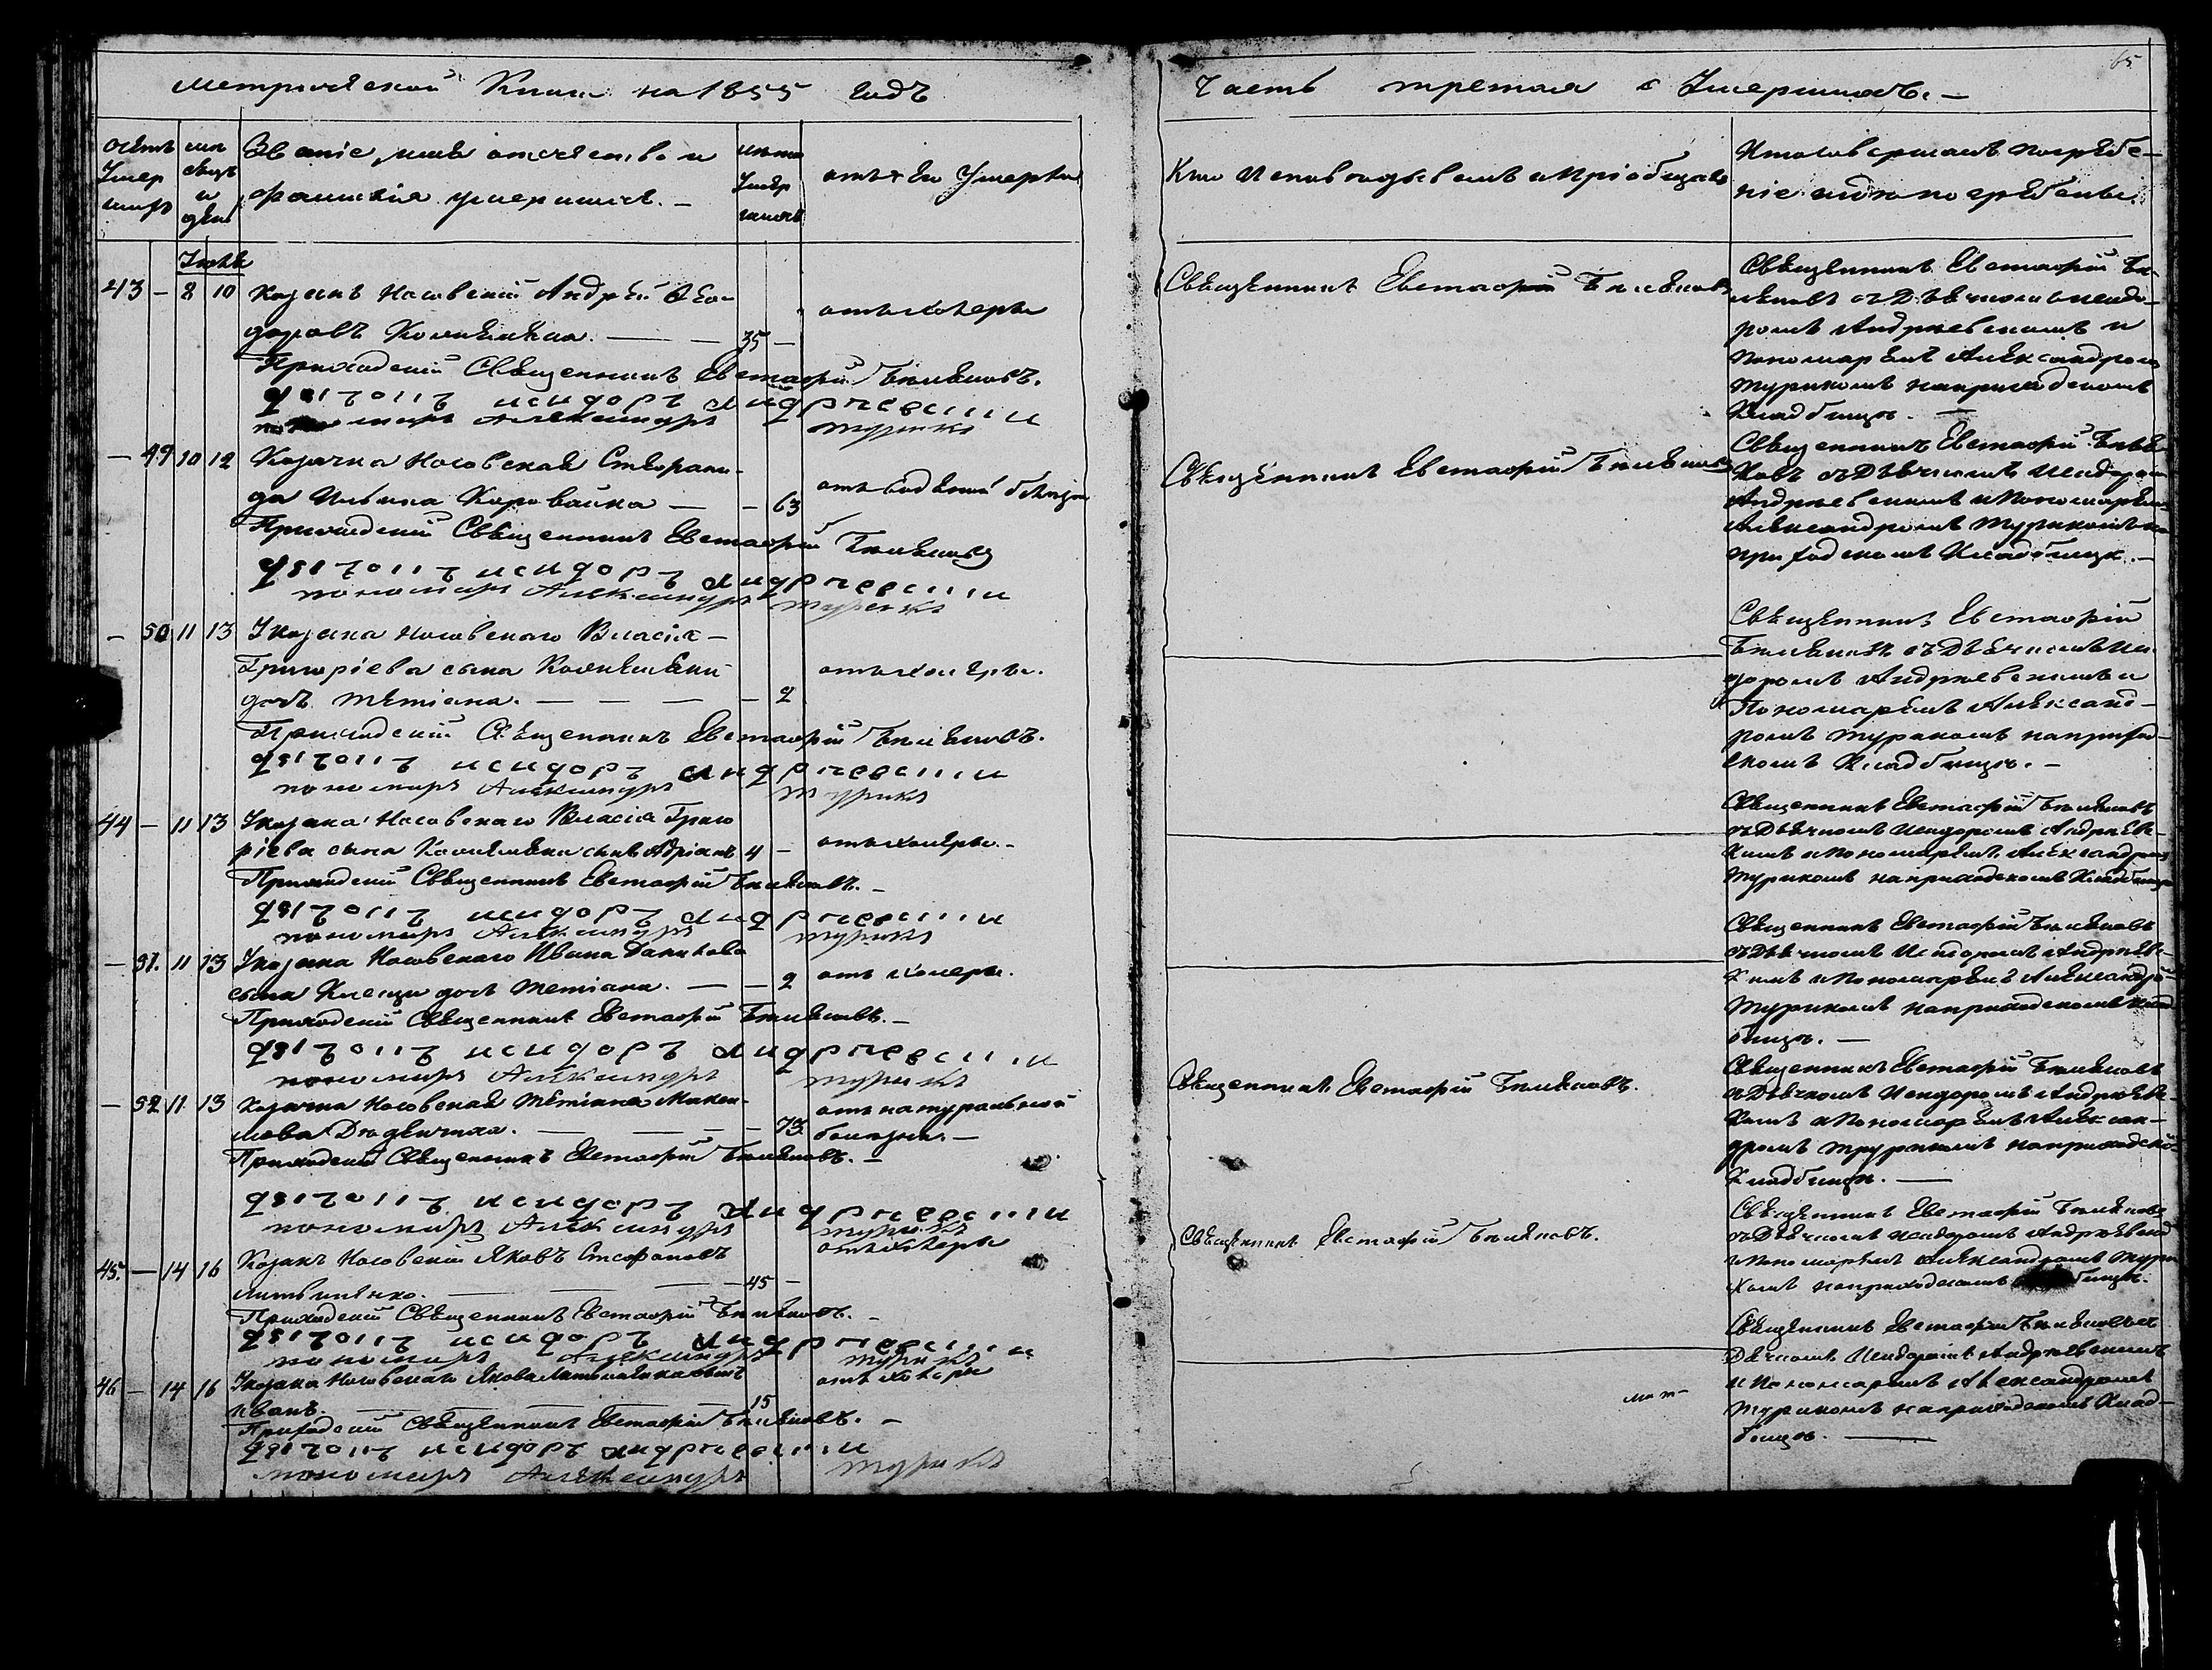 Метрической Книги на 1855 годъ
Часть третая о Умершихъ. —
65
Счетъ
Умер
шихъ
мѣ
сяцъ
и
дни
Званіе, имя отечество и
фамилія умершихъ. —
лѣта
Умер
шихъ
отъ чего Умерли
Кто Исповѣдывалъ и Пріобщалъ
Кто совершалъ погребе-
ніе и гдѣ погребены.
43 — 8 10
Козакъ Носовскій Андрей Ѳео-
доровъ — — 35 —
отъ холеры
Приходскій Священникъ Евстафій
дячокъ исидоръ андріевскій
пономарь Александръ Турикъ
Священникъ Евстафій
Священникъ Евстафій
съ Дьячкомъ Исидо-
ромъ Андріевскимъ и
Пономаремъ Александромъ
Турикомъ на приходскомъ
Кладбищѣ. —
— 49 10 12
Козачка Носовская Стефани-
да Ильина — — 63
отъ
Приходскій Священникъ Евстафій
дячокъ исидоръ андріевскій
пономарь Александръ Турикъ
Священникъ Евстафій
Священникъ Евстафій
съ Дьячкомъ Исидоромъ
Андріевскимъ и Пономаремъ
Александромъ Турикомъ на
приходскомъ Кладбищѣ. —
— 50 11 13
У козака Носовского Власія —
Григоріева сына
дочь Тетіана. — — — — 2
отъ холеры.
Приходскій Священникъ Евстафій
дячокъ исидоръ андріевскій
пономарь Александръ Турикъ
Священникъ Евстафій
съ Дьячкомъ Иси-
доромъ Андріевскимъ и
Пономаремъ Александ-
ромъ Турикомъ на приход-
скомъ Кладбищѣ. —
44 — 11 13
У козака Носовского Власія Григо
ріева сына сынъ Адріанъ 4 —
отъ холеры. —
Приходскій Священникъ Евстафій
дячокъ исидоръ андріевскій
пономарь Александръ Турикъ
Священникъ Евстафій
съ Дьячкомъ Исидоромъ Андріев-
скимъ и Пономаремъ Александромъ
Турикомъ на приходскомъ Кладбищѣ
— 51. 11 13
У козака Носовского Ивана Данилова
сына дочь Тетіана. — — 2
отъ холеры.
Приходскій Священникъ Евстафій
дячокъ исидоръ андріевскій
пономарь Александръ Турикъ
Священникъ Евстафій
съ Дьячкомъ Исидоромъ Андріев-
скимъ и Пономаремъ Александро
Турикомъ на приходскомъ Клад
бищѣ. —
— 52 11 13
Козачка Носовская Тетіана Макси-
мова — — — 73
отъ натуральной
болѣзни. —
Приходскій Священникъ Евстафій
дячокъ исидоръ андріевскій
пономарь Александръ Турикъ
Священникъ Евстафій
Священникъ Евстафій
съ Дьячкомъ Исидоромъ Андріев-
скимъ и Пономаремъ Алексан-
дромъ Турикомъ на приходско
Кладбищѣ. —
45. — 14 16
Козакъ Носовскій Яковъ Стефановъ
Литвиненко. — — — 45 —
отъ холеры
Приходскій Священникъ Евстафій
дячокъ исидоръ андріевскій
пономарь Александръ Турикъ
Священникъ Евстафій
Священникъ Евстафій
съ Дьячкомъ Исидоромъ Андріевски
и Пономаремъ Александромъ Тури
комъ на приходскомъ
46 — 14 16
У козака Носовского Якова Литвиненка сынъ
Иванъ. — — — 15
отъ холеры
Приходскій Священникъ Евстафій
дячокъ исидоръ андріевскій
пономарь Александръ Турикъ
Священникъ Евстафій съ
Дьячкомъ Исидоромъ Андріевскимъ
и Пономаремъ Александромъ
Турикомъ на приходскомъ Клад-
бищѣ. —